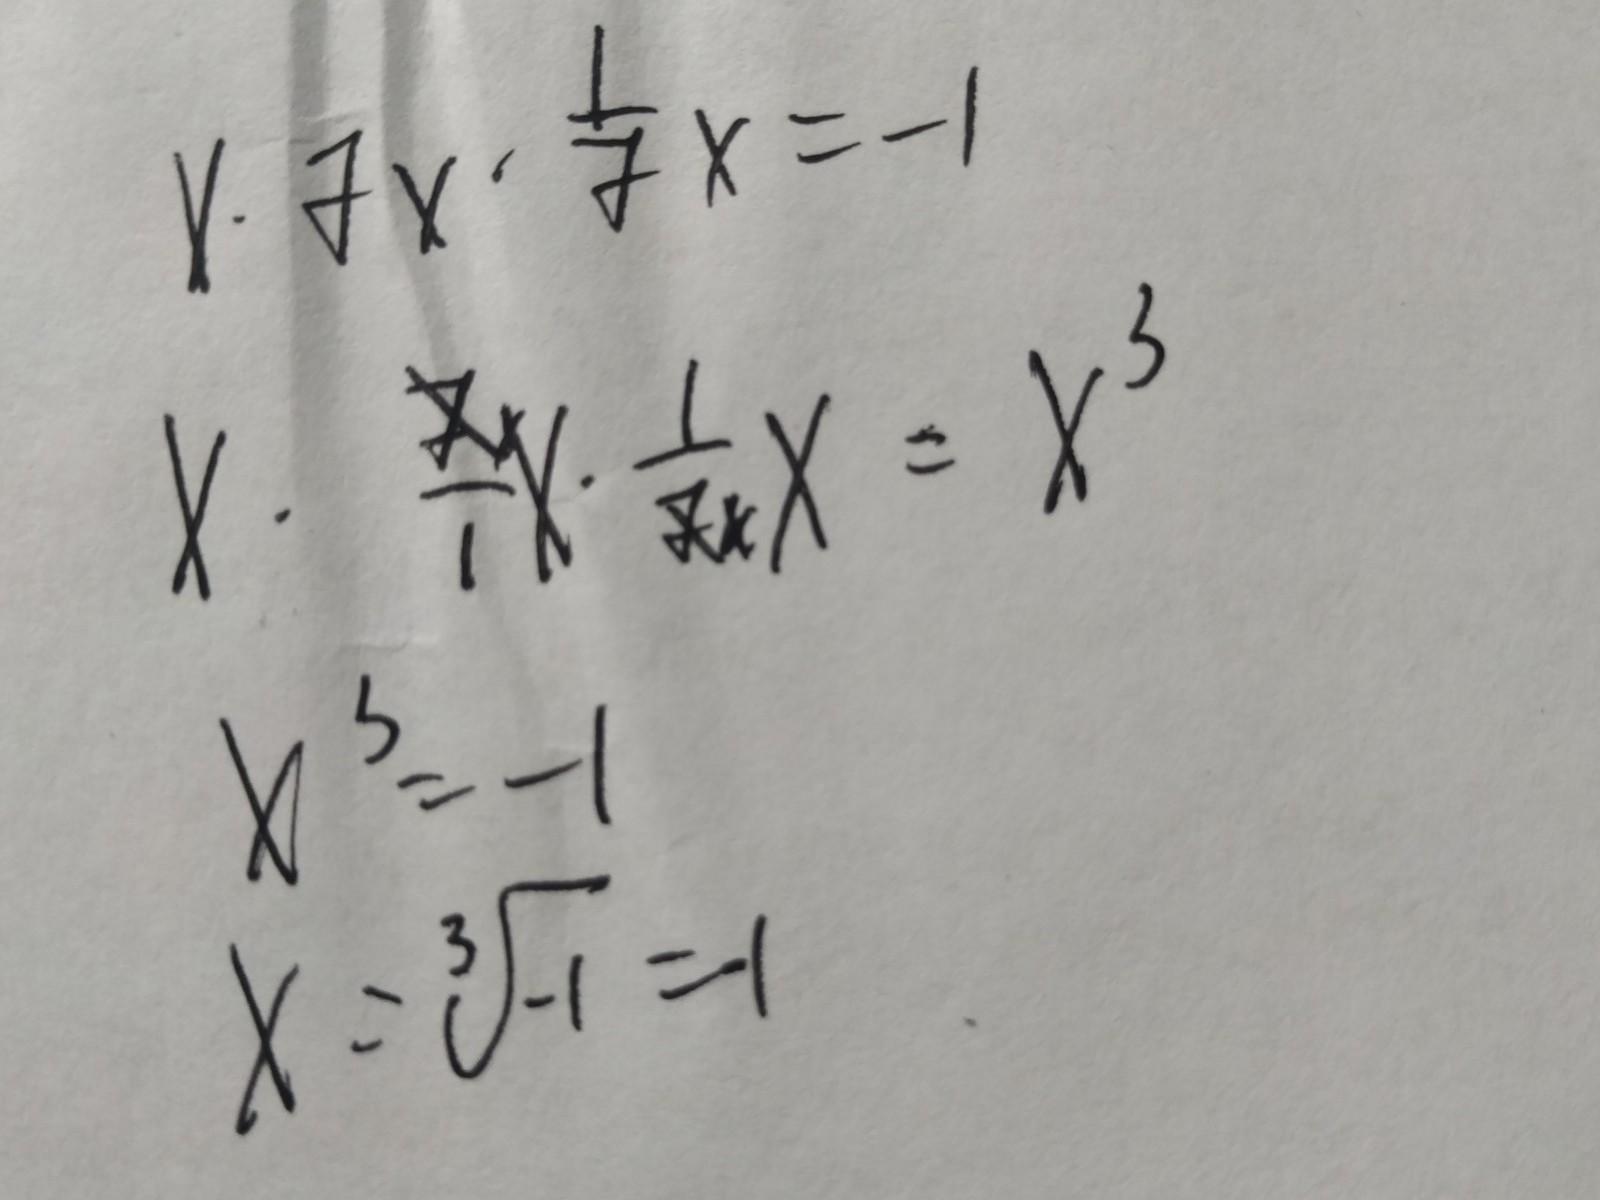 x · 7x · 1/7 x = -1
x · 7/1 x · 1/7 x = x³
x³ = -1
x = ³√-1 = -1